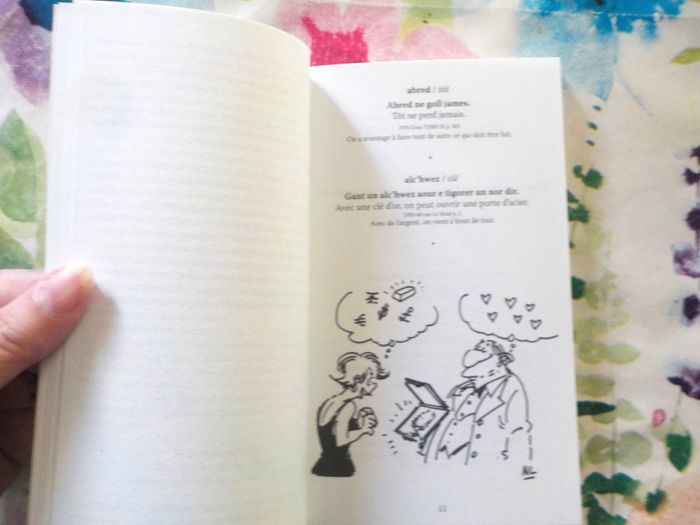 abred / tôt
Abred ne goll james.
Tôt ne perd jamais.
On a avantage à faire tout de suite ce qui doit être fait.
alc'hwez / clé
Gant un alc'hwez aour e tigorer un nor dir.
Avec une clé d'or, on peut ouvrir une porte d'acier.
Avec de l'argent, on vient à bout de tout.
NL
11